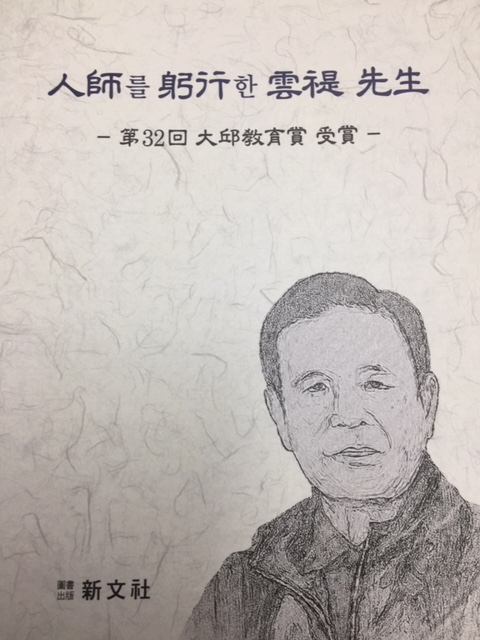 人師를 躬行한 雲禔 先生
- 第32回 大邱教育賞 受賞 -
圖書
出版 新文社